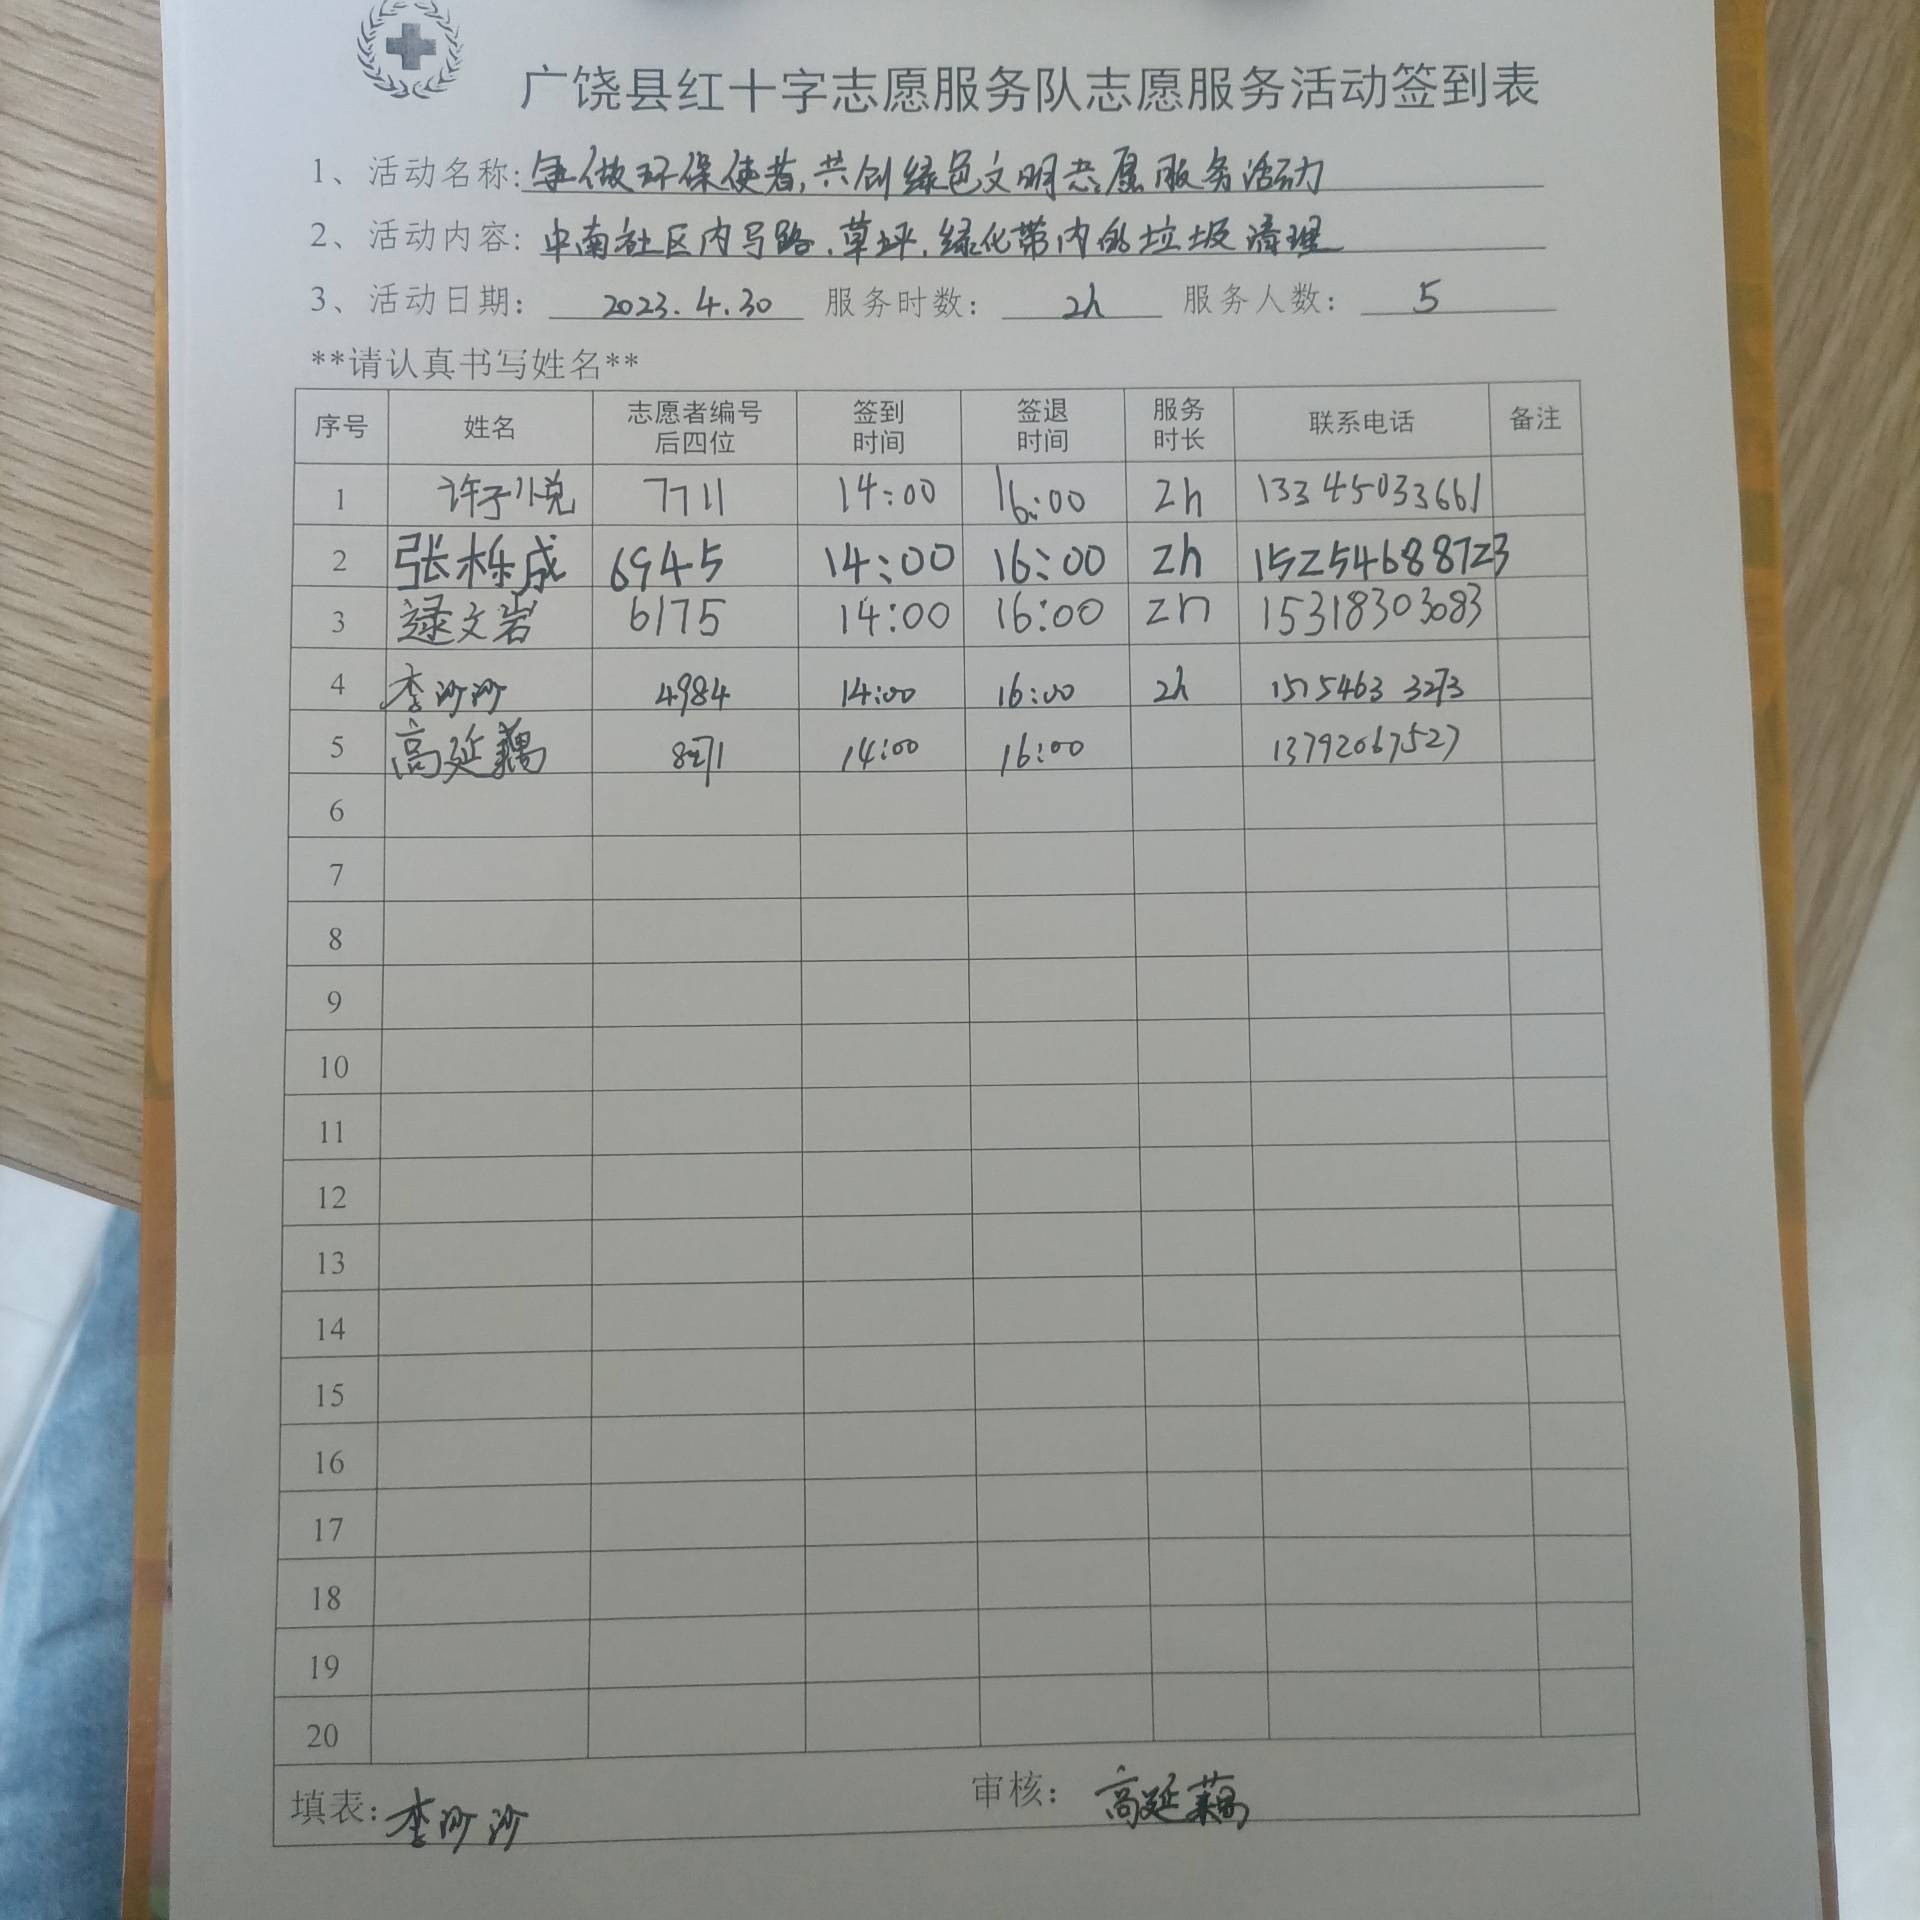 广饶县红十字志愿服务队志愿服务活动签到表
1、活动名称: 争做环保使者,共创绿色文明志愿服务活动
2、活动内容: 中南社区内马路、草坪、绿化带内的垃圾清理
3、活动日期: 2023.4.30 服务时数: 2h 服务人数: 5
**请认真书写姓名**
序号 姓名 志愿者编号后四位 签到时间 签退时间 服务时长 联系电话 备注
1 许子悦 7711 14:00 16:00 2h 13345033661
2 张栎成 6945 14:00 16:00 2h 15254688723
3 逯文岩 6175 14:00 16:00 2h 15318303083
4 李沙沙 4984 14:00 16:00 2h 15754633273
5 高延藕 8271 14:00 16:00 13792067527
6
7
8
9
10
11
12
13
14
15
16
17
18
19
20
填表: 李沙沙 审核: 高延藕